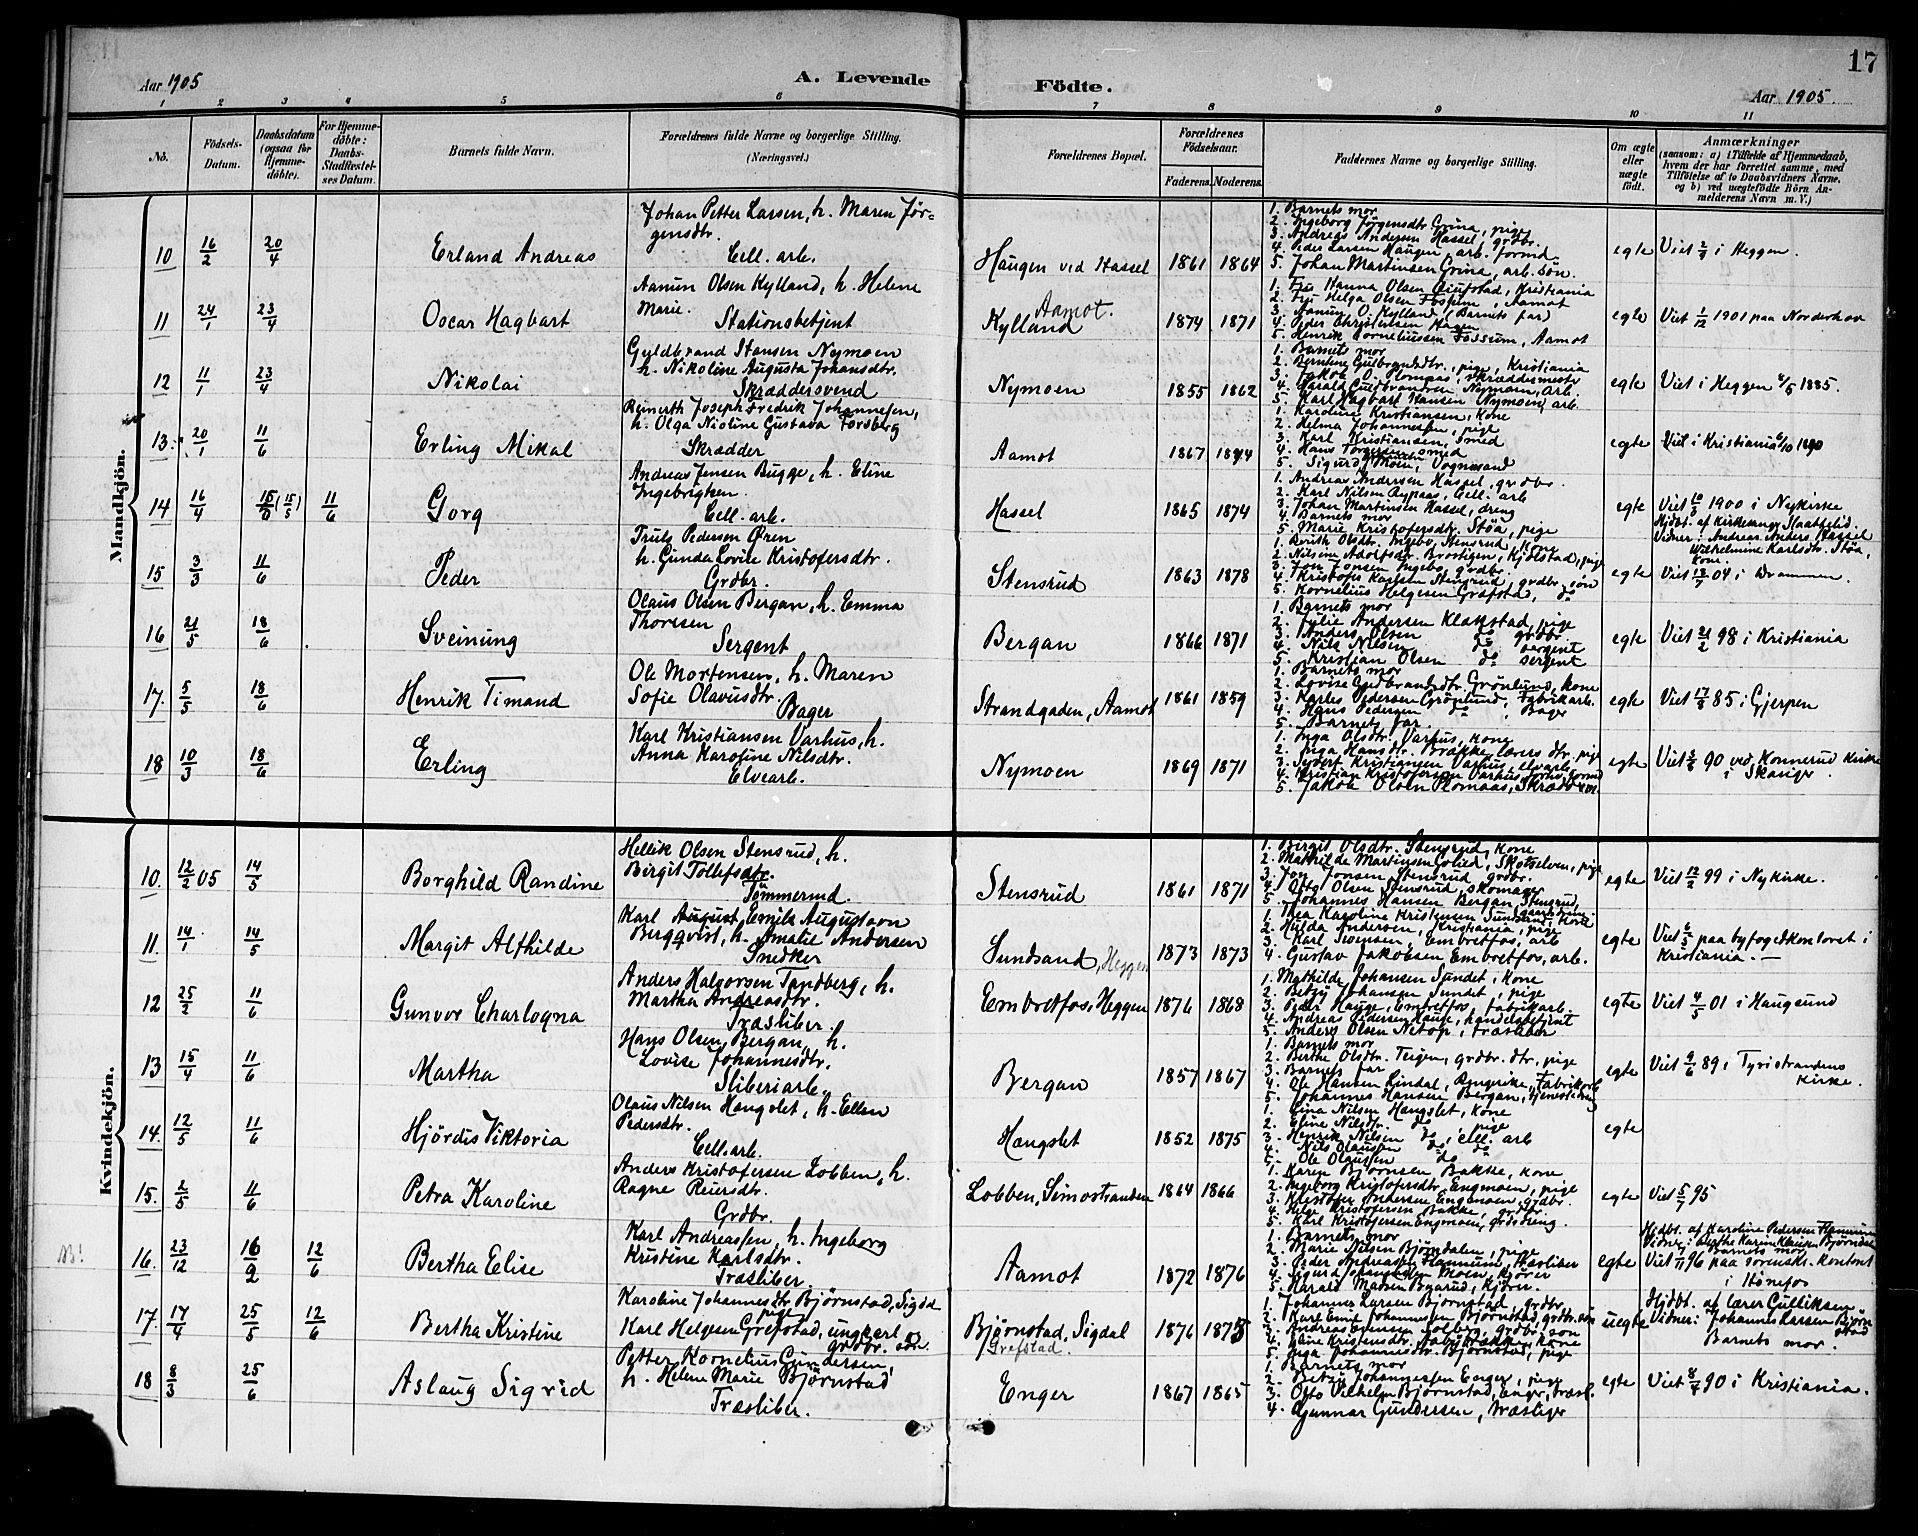 Aar 1905
A. Levende
Födte.
17
Aar 1905.
1 2 3 4 5 6 7 8 9 10 11
No.
Födsels-
Datum.
Daabsdatum
(ogsaa for
Hjemme-
döbte).
For Hjemme-
döbte:
Daabs-
Stadfæstel-
ses Datum.
Barnets fulde Navn.
Forældrenes fulde Navne og borgerlige Stilling.
(Næringsvei.)
Forældrenes Bopæl.
Forældrenes
Födselsaar.
Faderens. Moderens.
Faddernes Navne og borgerlige Stilling.
Om ægte
eller
uægte
födt.
Anmærkninger
(saasom: a) i Tilfælde af Hjemmedaab,
hvem der har forrettet samme, med
Tilföielse af to Daabsvidners Navne,
og b) ved uægtefödte Börn An-
melderens Navn m. V.)
Mandkjön.
10 16/2 20/4 Erland Andreas
Johan Petter Larsen, h. Maren Jør-
gensdtr.
Cell. arb.
Haugen ved Hassel 1861 1864
1. Barnets mor
2. Ingeborg Jørgensdtr. Grina, pige
3. Andreas Andersen Hassel, grdbr.
4. Peder Larsen Haugen, arb. formd.
5. Johan Martinsen Grina, arb. søn.
egte Viet i Heggen.
11 24/1 23/4 Oscar Hagbart
Aanun Olsen Kylland, h. Helene
Marie.
Stationsbetjent
Kylland Aamot. 1874 1871
2. Frk. Helga Olsen Fossum, Aamot
3. Aanun O. Kylland (Barnets far)
5. Henrik Korneliussen Fossum, Aamot
egte Viet 1/12 1901 paa Norderhov
12 11/1 23/4 Nikolai
Gulbrand Hansen Nymoen
h. Nikoline Augusta Johansdtr.
Skræddersvend
Nymoen 1855 1862
1. Barnets mor
2. Berntine Gulbrandsdtr., pige, Kristiania
3. Jakob O. Plomaas, skræddermester
4. Harald Guldbrandsen Nymoen, arb.
5. Karl Hagbart Hansen Nymoen, arb.
egte Viet i Heggen 1885.
13. 20/1 11/6 Erling Mikal
Reinerth Joseph Fredrik Johannesen,
h. Olga Nioline Gustava Forsberg
Skrædder
Aamot 1867 1874
1. Karoline Kristiansen, kone
2. Helma Johannessen, pige
3. Karl Kristiansen, smed
5. Sigurd Moen, Vognmand
egte Viet i Kristiania
14 16/4 11/6 Gorg
Andreas Jensen Bugge, h. Eline
Ingebrigtsen.
Cell. arb.
Hassel 1865 1874
1. Andreas Andersen Hassel, grdbr.
2. Karl Nilsen Rypaas, Cell. arb
3. Johan Martinsen Hassel, dreng
4. Barnets mor
5. Marie Kristofersdtr. Støa, pige
egte Viet 10/3 1900 i Nykirke
Hjdbt. af Kirkesanger Slaattelid.
Vidner: Andreas Anders. Hassel
Wilhelmine Karlsdtr. Støa,
Kone.
15 3/3 11/6 Peder
Truls Pedersen Øren
h. Gunda Lovise Kristofersdtr.
Grdbr.
Stensrud 1863 1878
3. Jon Jonsen Ingebo, grdbr.
4. Kristofer Karlsen Stensrud, grdbr. søn
5. Kornelius Helgesen Grefstad, do
egte Viet 04 i Drammen.
16 21/5 18/6 Sveinung
Olaus Olsen Bergan, h. Emma
Thoresen
Sergent
Bergan 1866 1871
1. Barnets mor
2. Julie Andersen Klækstad, pige
3. Anders Olsen do grdbr.
4. Nils Nilsen do sergent
5. Kristian Olsen do sergent
egte Viet 21/2 98 i Kristiania
17. 5/5 18/6 Henrik Timand
Ole Mortensen, h. Maren
Sofie Olavusdtr.
Bager
Strandgaden, Aamot 1861 1859
1. Barnets mor
2. Lovise Gudbrandsdtr. Grønlund, kone
3. Karles Pedersen Grønlund, Fabrikarb.
4. Hans Pedersen do, Bager
5. Barnets far.
egte Viet 85 i Gjerpen
18 10/3 18/6 Erling
Karl Kristiansen Varhus, h.
Anna Karoline Nilsdtr.
Elvearb.
Nymoen 1869 1871
1. Inga Olsdtr. Varhus, kone
2. Inga Hansdtr. Brække, lærers dtr, pige
3. Sefert Kristiansen Varhus, elvearb.
5. Jakob Olsen Plomaas, Skrædderm.
egte Viet 90 ved Konnerud Kirke
i Skauger.
Kvindekjön.
10. 12/2 05 14/5 Borghild Randine
Hellik Olsen Stensrud, h.
Birgit Tollefsdtr.
Tømmermd.
Stensrud 1861 1871
1. Birgit Olsdtr. Stensrud, kone
2. Mathilde Martinsen Solied, Skotselven, pige
3. Jon Jonsen Stensrud, grdbr.
4. Otto Olsen Stensrud, skomager
5. Johannes Hansen Bergan, Stensrud,
egte Viet 12/2 99 i Nykirke.
11. 14/1 14/5 Margit Alfhilde
Karl August Emils Augustavn
Bergqvist, h. Amalie Andersen
Snedker
Sundsand, Heggen 1873 1873
1. Thea Karoline Kristensen Sundsrud, Kone
2. Hilda Andersen, Kristiania, pige
3. Karl Svensen, Embretfos, arb
4. Gustav Jakobsen Embretfos, arb.
egte Viet paa byfogedkontoret i
Kristiania. —
12 25/2 11/6 Gunvor Charlogna
Anders Halvorsen Tandberg, h.
Martha Andreasdtr.
Træsliber.
Embretfos, Heggen 1876 1868
1. Mathilde Johansen Sundet, kone
2. Betzy Johansen Sundet, pige
3. Peder Hauge, Embretfos, fabrikarb.
4. Andreas Pedersen Hauge, handelsbetjent
5. Anders Olsen Netop, træsliber
egte Viet 4/5 01 i Haugsund
13 15/4 11/6 Martha
Hans Olsen Bergan, h.
Lovise Johannesdtr.
Sliberiarb.
Bergan 1857 1867
1. Barnets mor
2. Berthe Olsdtr. Teigen, grdbr. dtr, pige
3. Barnets far
4. Ole Hansen Lindal, Ringerike, Fabrikarb
5. Johannes Hansen Bergan, tjenestdreng
egte Viet 9/6 89 i Tyristrandens
Kirke.
14. 12/5 11/6 Hjördis Viktoria
Olaus Nilsen Haugslet, h. Ellen
Pedersdtr.
Cell. arb.
Haugslet 1852 1875
1. Lina Nilsen Haugslet, kone
2. Eline Nilsdtr. do, pige
3. Henrik Nilsen do, cell. arb
4. Nils Olaussen do do
5. Ole Olaussen do
egte
15. 2/5 11/6 Petra Karoline
Anders Kristofersen Lobben, h.
Ragne Reiersdtr.
Grdbr.
Lobben, Simostranden 1864 1866
1. Karen Bjørnsen Bakke, kone
2. Ingeborg Kristofersdtr. Engmoen, pige
3. Kristofer Andersen Engmoen, grdbr
4. Helge Kristofersen Bakke, grdbr.
5. Karl Kristofersen Engmoen, grdsdreng.
egte Viet 5/7 95
16. 23/12 16/2 12/6 Bertha Elise
Karl Andreassen, h. Ingeborg
Kristine Karlsdtr.
Træsliber.
Aamot 1872 1876
1. Barnets mor
2. Marie Nilsen Bjørndalen, pige
3. Peder Andreassen Hannum, træsliber
5. Harald Madsen Bugarud, kjører.
egte Hjdbt. af Karoline Pedersen Hannum
Vidner: Berthe Karen Klausen Bjørndalen
Barnets mor
Viet 96 paa sorenskr. kontoret
i Hønefos
17. 17/4 25/5 12/6 Bertha Kristine
Karoline Johannesdtr. Bjørnstad, Sigdal
pige
Karl Helgesen Grefstad, ungkarl og
grdbr. søn.
Bjørnstad, Sigdal
Grefstad. 1876 1875
1. Johannes Larsen Bjørnstad, grdbr.
2. Karl Emil Johannesen Bjørnstad, grdbr. søn
5. Inga Johannesdtr. Bjørnstad, pige
uegte Hjdbt. af lærer Gulliksen
Vidner: Johannes Larsen Bjørn
stad
Barnets mor.
18 8/3 25/6 Aslaug Sigrid
Petter Kornelius Gundersen,
h. Helene Marie Bjørnstad
Træsliber.
Enger 1867 1865
1. Barnets mor
2. Betzy Johannessen Enger, pige
3. Otto Vilhelm Bjørnstad, Enger, træsl.
4. Gunnar Gundersen, træsliger
egte Viet 90 i Kristiania.